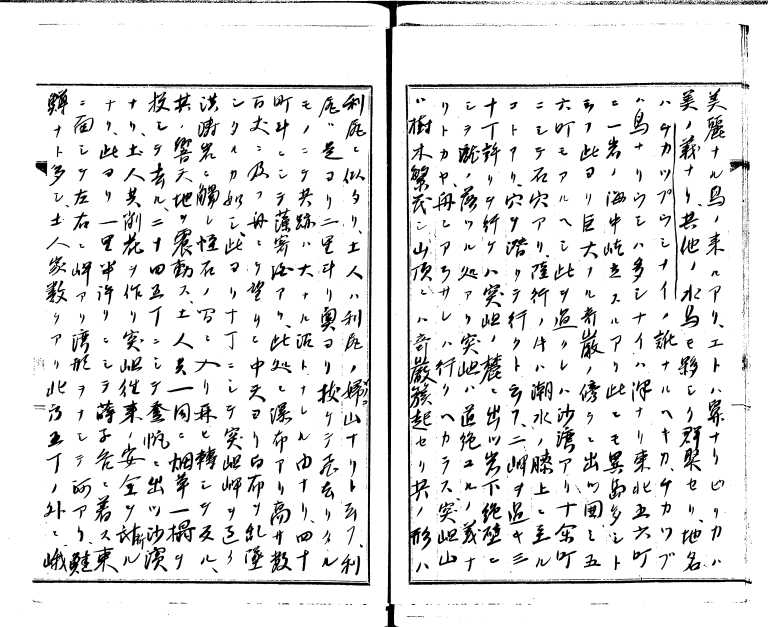 美麗ナル鳥ノ来ルアリ、エトハ鼻ナリピリカハ
美ノ義ナリ、其他ノ水鳥モ夥シク群集セリ、地名
ハチカツプウシナイノ訛ナルヘキカ、チカツプ
ハ鳥ナリウシハ多シナイハ澤ナリ東北五六町
ニ一岩ノ海中屹立スルアリ此ニモ異鳥多シト
云フ此ヨリ巨大ノル奇巌ノ傍ラニ出ツ圍ミ五
六町モアルヘシ此ヲ過クレハ沙湾アリ十余町
ニシテ石穴アリ、陸行ノ片ハ潮水ノ膝上ニ至ル
コトアリ、穴ヲ潜リテ行クト云フ、二岬ヲ過キ三
十丁許リヲ行ケハ突岨ノ麓ニ出ツ岩下絶壁ニ
シテ瀧ノ落ツル処アリ突岨ハ道絶ユルノ義ナ
リトカヤ、舟ニアラサレハ行クヘカラス突岨山
ハ樹木繁茂シ山頂ニハ奇巌簇起セリ其ノ形ハ
利尻ニ似タリ、土人ハ利尻ノ婦山ナリト云フ、利
尻ハ是ヨリ二里斗リ奥ヨリ抜ケテ飛去リタル
モノニテ其跡ハ大ナル沼トナレル由ナリ、四十
町斗ニシテ藻寄泊アリ、此処ニ瀑布アリ高サ数
百丈ニ及フ舟ニテ望メハ中天ヨリ白布ヲ乱墜
シタルカ如シ、此ヨリ十丁ニシテ突岨岬ヲ廻ル
洪濤岩ニ觸レ怪石ノ間ニ入リ再ヒ轉シテ反ル、
其ノ響天地ヲ震動ス、土人共一同ニ烟草一撮ヲ
投シテ去ル、二十四五丁ニシテ出ツ沙濱
ナリ、土人共削花ヲ作リ突岨往来ノ安全ヲ祷ル
ナリ、此ヨリ一里半許リニシテニ着ス東
ニ面シテ左右ニ岬アリ湾形ヲナシテ河アリ、鮭
鱒ナト多シ、土人家数ケアリ此ヨリ五丁ノ外ニ峨